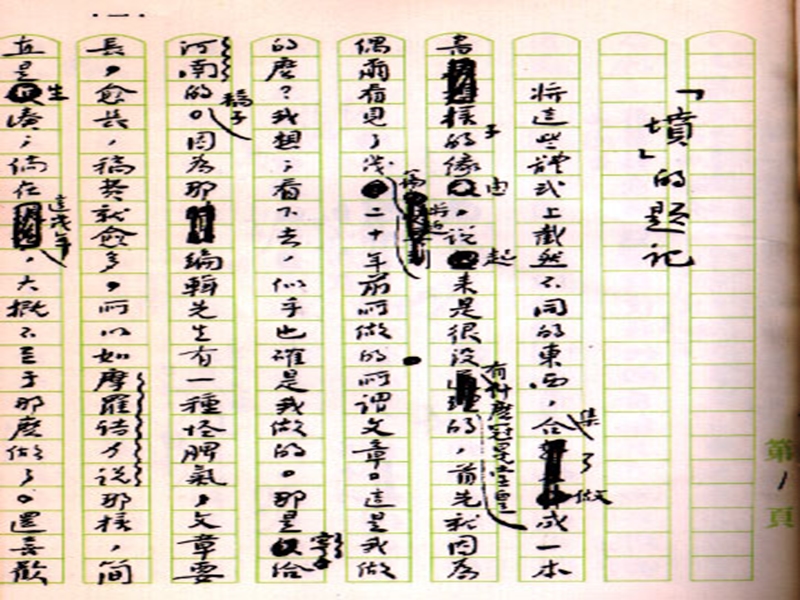 「墳」的題記
將這些體式上截然不同的東西,集合了做成一本
書樣子的緣由,說起來是很沒有什麼冠冕堂皇的,首先就因為
偶爾看見了幾篇將近二十年前所做的所謂文章。這是我做
的麼?我想;看下去,似乎也確是我做的。那是寄給
河南的稿子。因為那編輯先生有一種怪脾氣,文章要
長,愈長,稿費就愈多。所以如摩羅詩力說那樣,簡
直是生湊;倘在這幾年,大概不至于那麼做了。還喜歡
第1頁